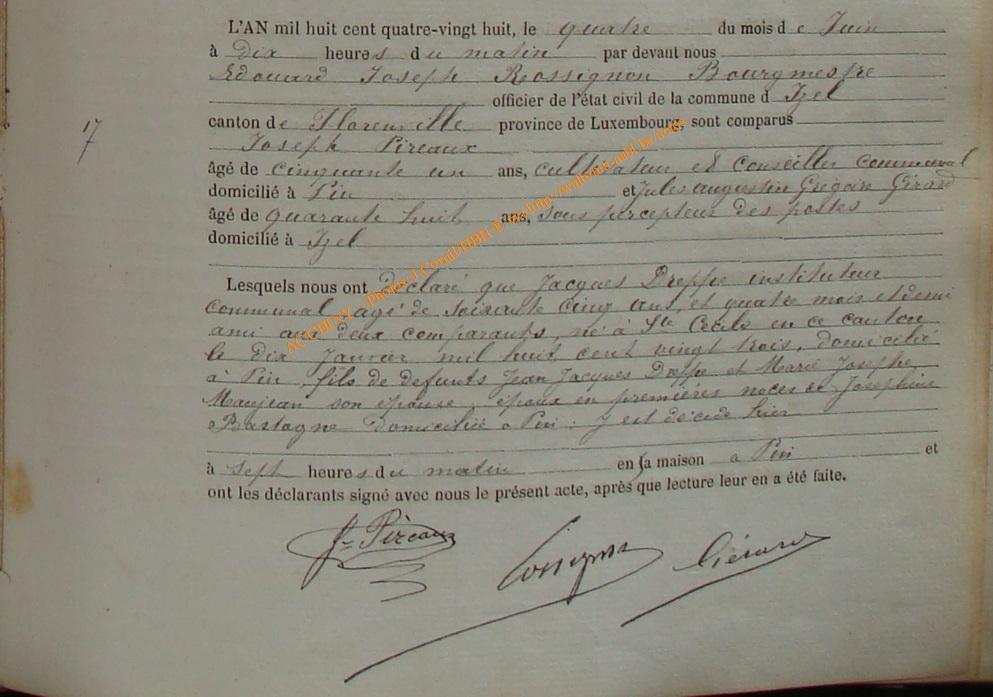 L'AN mil huit cent quatre-vingt huit, le quatre du mois de Juin
à dix heures du matin par devant nous
Edouard Joseph Rossignon Bourgmestre
officier de l'état civil de la commune d Izel
canton de Florenville province de Luxembourg, sont comparus
17
Joseph Pireaux
âgé de cinquante un ans, cultivateur et conseiller communal
domicilié à Pin et Jules augustin Grégoire Gérard
âgé de quarante huit ans, sous percepteur des postes
domicilié à Izel
Lesquels nous ont déclaré que Jacques Dreppe instituteur
communal agé de soixante cinq ans, et quatre mois et demi
ami aux deux comparants, né à Ste Cécile en ce canton
le dix Janvier mil huit cent vingt trois, domicilié
à Pin, fils de defunts Jean Jacques Dreppe et Marie Josephe
Maujean son épouse, époux en premières noces de Joséphine
Bastogne domiciliée à Pin : y est décédé hier
à sept heures du matin en sa maison à Pin et
ont les déclarants signé avec nous le présent acte, après que lecture leur en a été faite.
J- Pireaux Rossignon Gérard